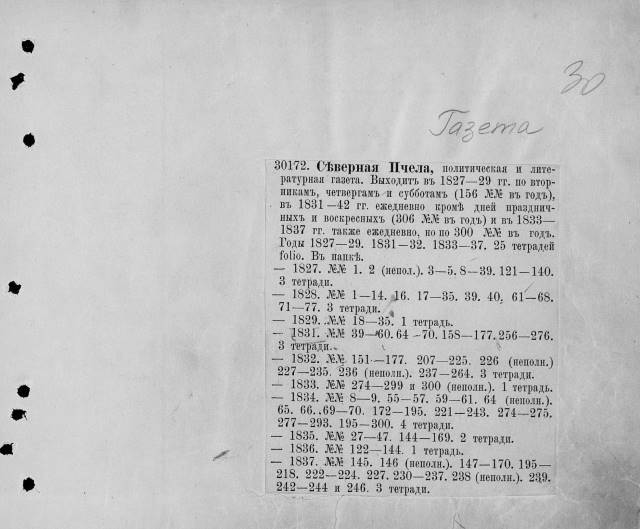 30
Газета
30172. Сѣверная Пчела, политическая и лите-
ратурная газета. Выходитъ въ 1827—29 гг. по втор-
никамъ, четвергамъ и субботамъ (156 №№ въ годъ),
въ 1831—42 гг. ежедневно кромѣ дней празднич-
ныхъ и воскресныхъ (306 №№ въ годъ) и въ 1833—
1837 гг. также ежедневно, но по 300 №№ въ годъ.
Годы 1827—29. 1831—32. 1833—37. 25 тетрадей
folio. Въ папкѣ.
— 1827. №№ 1. 2 (непол.). 3—5. 8—39. 121—140.
3 тетради.
— 1828. №№ 1—14. 16. 17—35. 39. 40. 61—68.
71—77. 3 тетради.
— 1829. №№ 18—35. 1 тетрадь.
— 1831. №№ 39—60. 64—70. 158—177. 256—276.
3 тетради.
— 1832. №№ 151—177. 207—225. 226 (неполн.)
227—235. 236 (неполн.). 237—264. 3 тетради.
— 1833. №№ 274—299 и 300 (неполн.). 1 тетрадь.
— 1834. №№ 8—9. 55—57. 59—61. 64 (неполн.).
65. 66. 69—70. 172—195. 221—243. 274—275.
277—293. 195—300. 4 тетради.
— 1835. №№ 27—47. 144—169. 2 тетради.
— 1836. №№ 122—144. 1 тетрадь.
— 1837. №№ 145. 146 (неполн.). 147—170. 195—
218. 222—224. 227. 230—237. 238 (неполн.). 239.
242—244 и 246. 3 тетради.